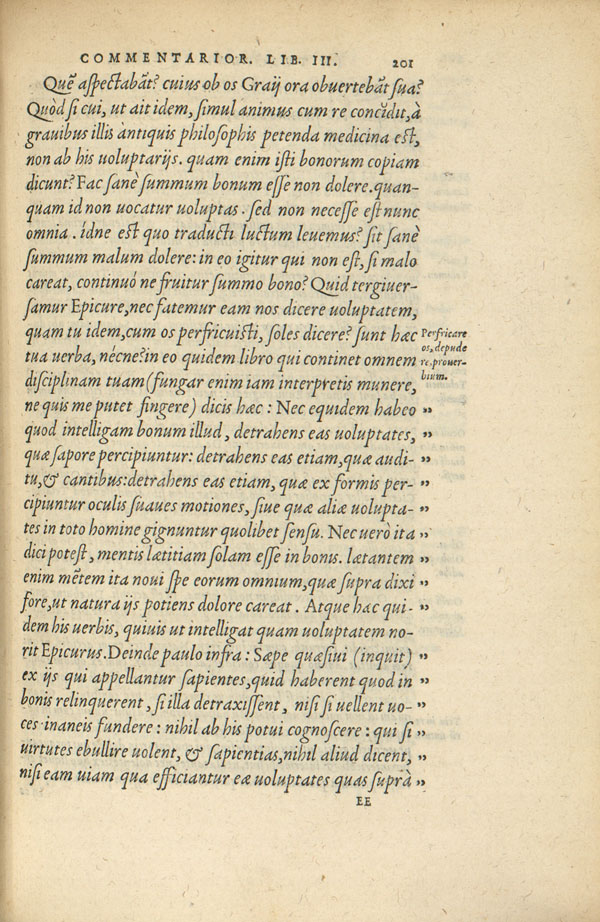 COMMENTARIOR. LIB. III. 201
Quē aspectabāt? cuius ob os Graij ora obuertebāt sua?
Quòd si cui, ut ait idem, simul animus cum re concĭdit, à
grauibus illis antiquis philosophis petenda medicina est,
non ab his uoluptarijs. quam enim isti bonorum copiam
dicunt? Fac sanè summum bonum esse non dolere. quan-
quam id non uocatur uoluptas. sed non necesse est nunc
omnia. ídne est quo traducti luctum leuemus? sit sanè
summum malum dolere: in eo igitur qui non est, si malo
careat, continuó ne fruitur summo bono? Quid tergiuer-
samur Epicure, nec fatemur eam nos dicere uoluptatem,
quam tu idem, cum os perfricuisti, soles dicere? sunt hæc
Perfricare
tua uerba, nécne? in eo quidem libro qui continet omnem
os, depude
re. prouer-
disciplinam tuam (fungar enim iam interpretis munere,
bium.
ne quis me putet fingere) dicis hæc: Nec equidem habeo „
quod intelligam bonum illud, detrahens eas uoluptates, „
quæ sapore percipiuntur: detrahens eas etiam, quæ audi- „
tu, & cantibus: detrahens eas etiam, quæ ex formis per- „
cipiuntur oculis suaues motiones, siue quæ aliæ uolupta- „
tes in toto homine gignuntur quolibet sensu. Nec uerò ita „
dici potest, mentis lætitiam solam esse in bonis. lætantem „
enim mētem ita noui spe eorum omnium, quæ supra dixi „
fore, ut natura ijs potiens dolore careat. Atque hæc qui- „
dem his uerbis, quiuis ut intelligat quam uoluptatem no-
rit Epicurus. Deinde paulo infra: Sæpe quæsiui (inquit) „
ex ijs qui appellantur sapientes, quid haberent quod in „
bonis relinquerent, si illa detraxissent, nisi si uellent uo- „
ces inaneis fundere: nihil ab his potui cognoscere: qui si „
uirtutes ebullire uolent, & sapientias, nihil aliud dicent, „
nisi eam uiam qua efficiantur eæ uoluptates quas suprà „
EE